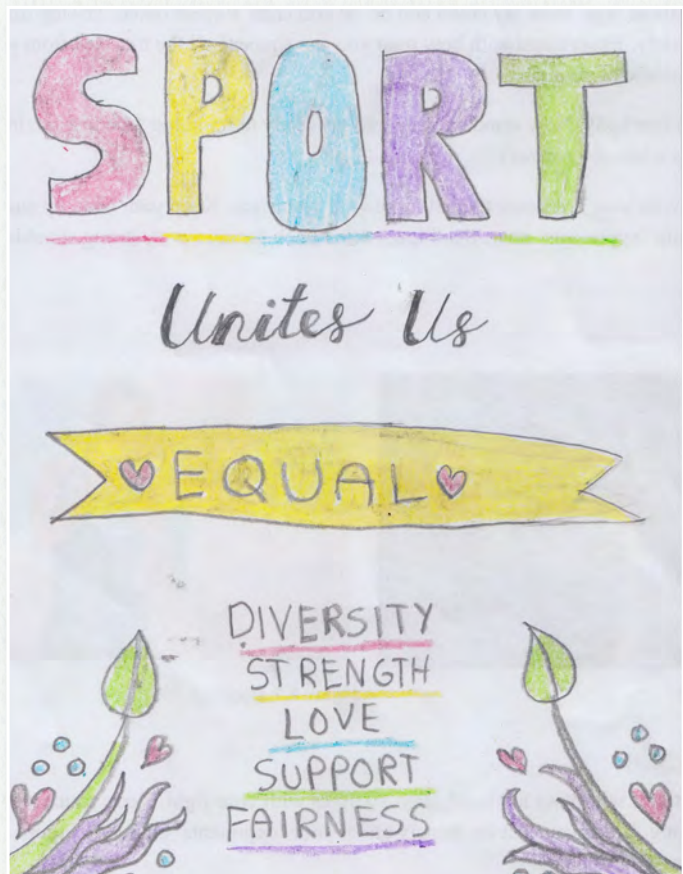 SPORT
Unites Us
EQUAL
DIVERSITY
STRENGTH
LOVE
SUPPORT
FAIRNESS